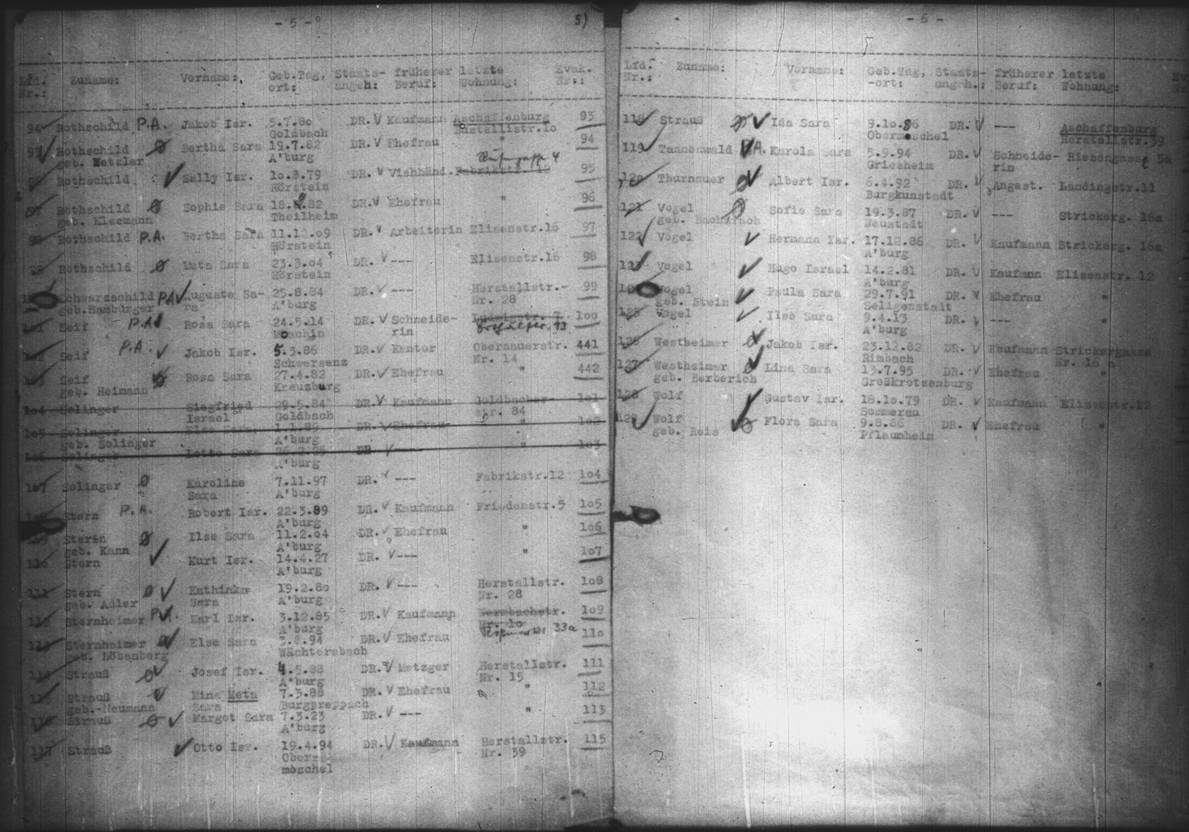 - 5 -
5)
Lfd. Zuname: Vorname: Geb.Tag, Staats- früherer letzte Evak.
Nr.: ort: angeh: Beruf: Wohnung: Nr.:
94 Rothschild P.A. Jakob Isr. 5.7.80 DR. Kaufmann Aschaffenburg 93
Goldbach Herstallstr.10
Rothschild Bertha Sara 19.7.82 DR. Ehefrau " 94
geb. Metzler A'burg
Rothschild Sally Isr. 10.8.79 DR. Viehhänd. Fabrikstr. 95
Hörstein
Rothschild Sophie Sara 18. .82 DR. Ehefrau " 96
geb. Kleemann Theilheim
Rothschild P.A. Bertha Sara 11.12.09 DR. Arbeiterin Elisenstr.16 97
Hörstein
Rothschild Meta Sara 23.3.04 DR. --- Elisenstr.16 98
Hörstein
Schwarzschild PA Auguste Sa- 25.8.84 DR. --- Herstallstr.- 99
geb.Hamburger ra A'burg Nr. 28
101 Seif P.A. Rosa Sara 24.5.14 DR. Schneide- Ludwigstr. 7 100
rin 13
102 Seif P.A. Jakob Isr. 5.3.86 DR. Kantor Obernauerstr. 441
Schwersenz Nr. 14
103 Seif Rosa Sara 27.4.82 DR. Ehefrau " 442
geb. Heimann Kreuzburg
104 Solinger Siegfried 29.5.84 DR. Kaufmann Goldbacher- 101
Israel Goldbach str. 84
105 Solinger Sara DR. Ehefrau " 102
geb. Solinger A'burg
106 Solinger Lotte Sara DR. --- " 103
A'burg
107 Solinger Karoline 7.11.97 DR. --- Fabrikstr.12 104
Sara A'burg
Stern P.A. Robert Isr. 22.3.89 DR. Kaufmann Friedenstr.5 105
A'burg
109 Stern Ilse Sara 11.2.04 DR. Ehefrau " 106
geb. Kann A'burg
110 Stern Kurt Isr. 14.4.27 DR. --- " 107
A'burg
111 Stern Kathinka 19.2.80 DR. --- Herstallstr. 108
geb. Adler Sara A'burg Nr. 28
112 Sternheimer Karl Isr. 3.12.85 DR. Kaufmann 109
A'burg Nr. 10
113 Sternheimer Else Sara 3.8.94 DR. Ehefrau 33a 110
geb. Löbenberg Wächtersbach
114 Strauß Josef Isr. 4.5.88 DR. Metzger Herstallstr. 111
A'burg Nr. 15
115 Strauß Mina Meta 7.3.88 DR. Ehefrau " 112
geb. Neumann Sara Burgpreppach
116 Strauß Margot Sara 7.3.23 DR. --- " 113
A'burg
117 Strauß Otto Isr. 19.4.94 DR. Kaufmann Herstallstr. 115
Ober- Nr. 59
möschel
- 6 -
Lfd. Zuname: Vorname: Geb.Tag, Staats- früherer letzte
Nr.: -ort: angeh.: Beruf: Wohnung:
118 Strauß Ida Sara 9.10.86 DR. --- Aschaffenburg
Obermoschel Herstallstr.59
119 Tannenwald Karola Sara 5.9.94 DR. Schneide- Riesengasse 5a
Griesheim rin
120 Thurnauer Albert Isr. 6.4.92 DR. Angest. Landingstr.11
Burgkunstadt
121 Vogel Sofie Sara 19.3.87 DR. --- Strickerg. 16a
geb. Bacharach Neustadt
122 Vogel Hermann Isr. 17.12.86 DR. Kaufmann Strickerg. 16a
A'burg
Vogel Hugo Israel 14.2.81 DR. Kaufmann Elisenstr. 12
A'burg
Vogel Paula Sara 29.7.91 DR. Ehefrau "
geb. Stein Seligenstadt
125 Vogel Ilse Sara 9.4.13 DR. --- "
A'burg
126 Westheimer Jakob Isr. 23.12.82 DR. Kaufmann Strickergasse
Rimbach Nr. 16 a
127 Westheimer Lina Sara 13.7.95 DR. Ehefrau "
geb. Berberich Großkrotzenburg
128 Wolf Gustav Isr. 18.10.79 DR. Kaufmann Elisenstr.12
Sommerau
129 Wolf Flora Sara 9.8.88 DR. Ehefrau "
geb. Reis Pflaumheim